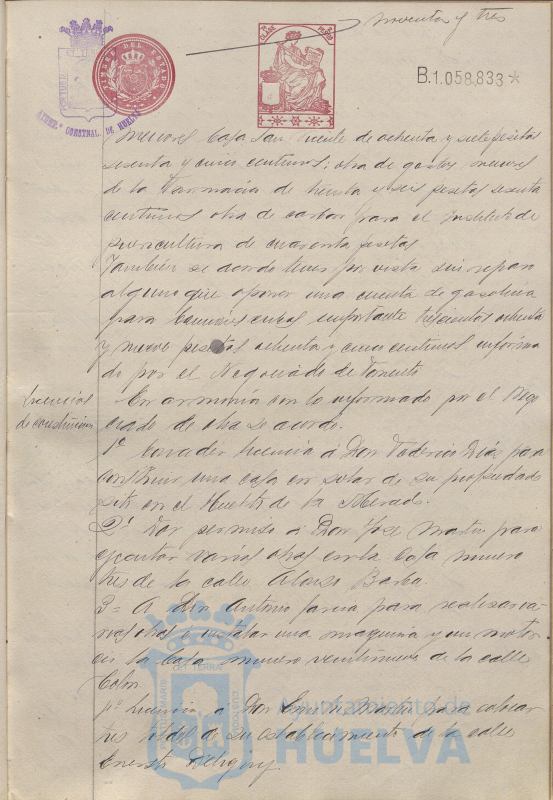 noventa y tres
TIMBRE DEL ESTADO
B.1.058.833*
menores Casa San Vicente de ochenta y siete pesetas
sesenta y cinco centimos; otra de gastos menores
de la Farmacia de treinta y seis pesetas sesenta
centimos otra de carbon para el Instituto de
puericultura de cuarenta pesetas
También se acordó tener por vista sin reparo
alguno que oponer una cuenta de gasolina
para importante trescientas ochenta
y nueve pesetas ochenta y cinco centimos informa
do por el Negociado de Fomento
Licencias
de construccion
En armonia con lo informado por el Nego
ciado de obras se acordo.
1º Conceder licencia á Don Federico Díaz para
construir una casa en solar de su propiedad
sito en el Huerto de la Merced.
2º Dar permiso á Don José para
ejecutar varias obras en la casa numero
tres de la calle Alonso Barba.
3º A Don Antonio Garcia para realizar va
rias obras e instalar una maquina y un motor
en la casa numero veintinueve de la calle
Colon
4º licencia á Don para colocar
tres toldos de su establecimiento de la calle
Ernesto Deligny.
Ayuntamiento de
HUELVA